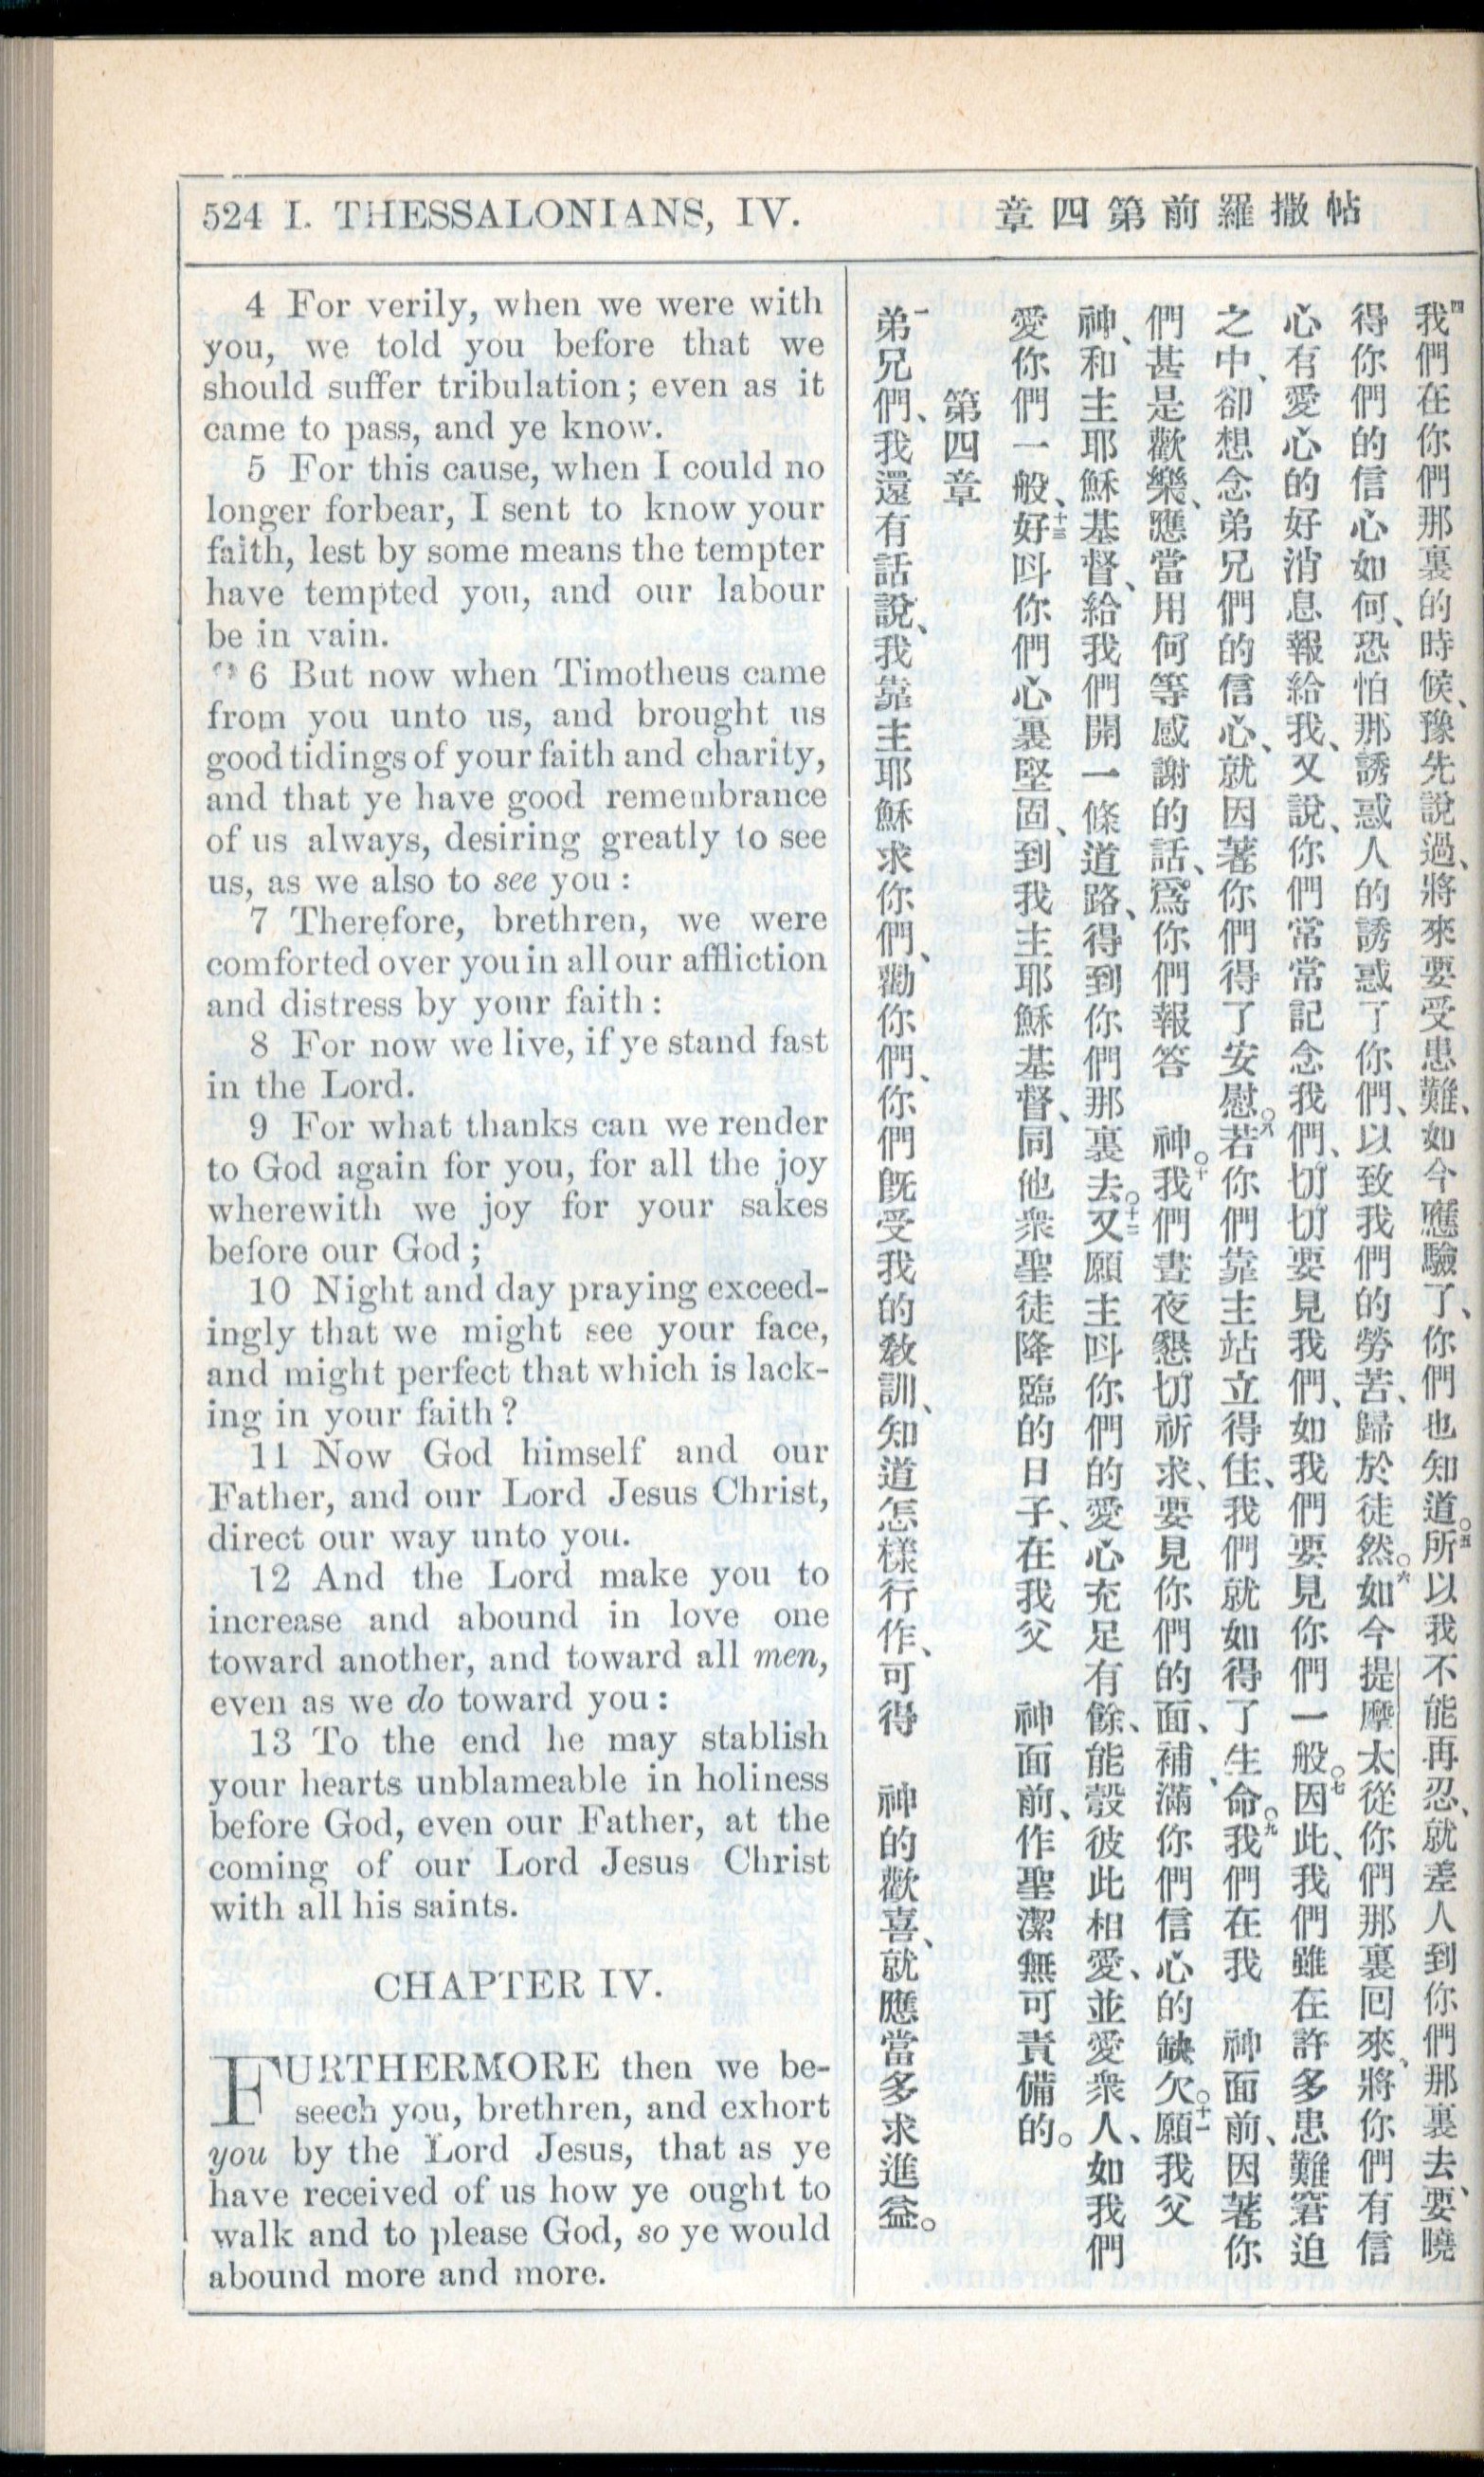 524 I. THESSALONIANS, IV.
帖撒羅前第四章
4 For verily, when we were with
you, we told you before that we
should suffer tribulation; even as it
came to pass, and ye know.
5 For this cause, when I could no
longer forbear, I sent to know your
faith, lest by some means the tempter
have tempted you, and our labour
be in vain.
6 But now when Timotheus came
from you unto us, and brought us
good tidings of your faith and charity,
and that ye have good remembrance
of us always, desiring greatly to see
us, as we also to see you:
7 Therefore, brethren, we were
comforted over you in all our affliction
and distress by your faith:
8 For now we live, if ye stand fast
in the Lord.
9 For what thanks can we render
to God again for you, for all the joy
wherewith we joy for your sakes
before our God;
10 Night and day praying exceed-
ingly that we might see your face,
and might perfect that which is lack-
ing in your faith?
11 Now God himself and our
Father, and our Lord Jesus Christ,
direct our way unto you.
12 And the Lord make you to
increase and abound in love one
toward another, and toward all men,
even as we do toward you:
13 To the end he may stablish
your hearts unblameable in holiness
before God, even our Father, at the
coming of our Lord Jesus Christ
with all his saints.
CHAPTER IV.
FURTHERMORE then we be-
seech you, brethren, and exhort
you by the Lord Jesus, that as ye
have received of us how ye ought to
walk and to please God, so ye would
abound more and more.
四我們在你們那裏的時候、豫先說過、將來要受患難、如今應驗了、你們也知道。五所以我不能再忍、就差人到你們那裏去、要曉
得你們的信心如何、恐怕那誘惑人的誘惑了你們、以致我們的勞苦、歸於徒然。六如今提摩太從你們那裏回來、將你們有信
心有愛心的好消息報給我、又說、你們常常記念我們、切切要見我們、如我們要見你們一般。七因此、我們雖在許多患難窘迫
之中、卻想念弟兄們的信心、就因著你們得了安慰。八若你們靠主站立得住、我們就如得了生命。九我們在我　神面前、因著你
們甚是歡樂、應當用何等感謝的話、爲你們報答　神。十我們晝夜懇切祈求、要見你們的面、補滿你們信心的缺欠。十一願我父
神、和主耶穌基督、給我們開一條道路、得到你們那裏去。十二又願主呌你們的愛心充足有餘、能彀彼此相愛、並愛衆人、如我們
愛你們一般、十三好呌你們心裏堅固、到我主耶穌基督、同他衆聖徒降臨的日子、在我父　神面前、作聖潔無可責備的。
第四章
一弟兄們、我還有話說、我靠主耶穌求你們、勸你們、你們旣受我的敎訓、知道怎樣行作、可得　神的歡喜、就應當多求進益。